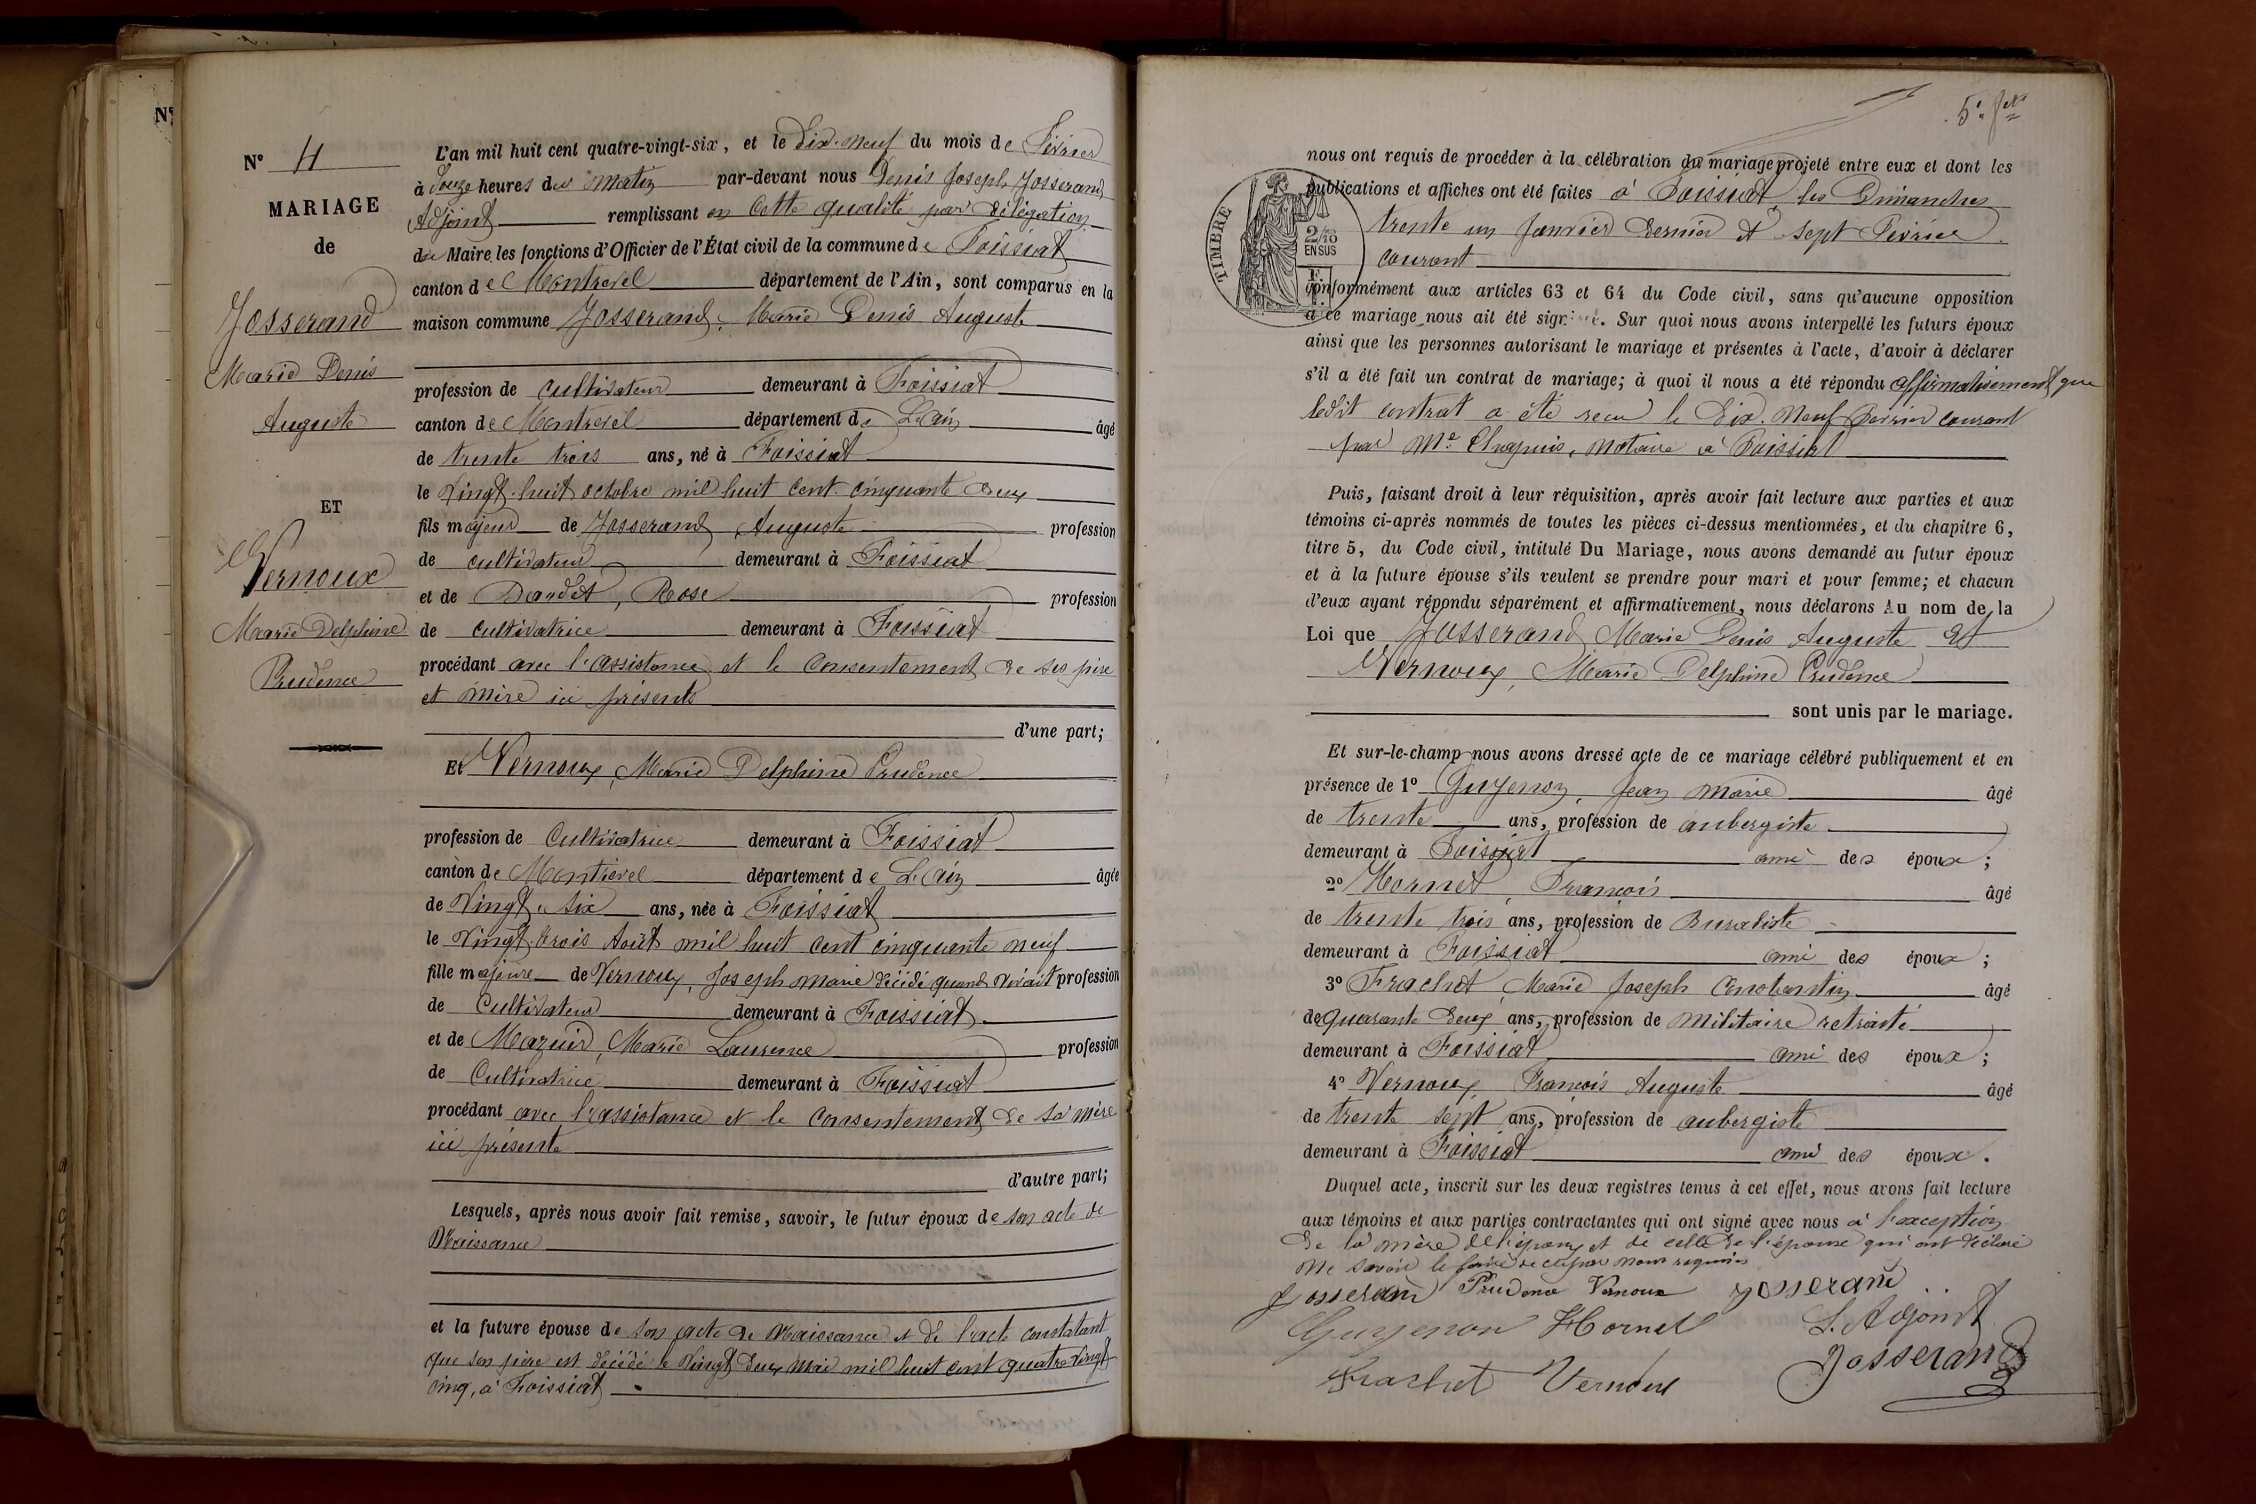 N° 4
MARIAGE
de
Josserand
Marie Denis
Auguste
ET
Vernoux
Marie Delphine
Prudence
L'an mil huit cent quatre-vingt-six, et le Dix-Neuf du mois de Février
à onze heures du matin par-devant nous Denis Joseph Josserand
Adjoint remplissant en cette qualité par délégation
du Maire les fonctions d'Officier de l'État civil de la commune de Foissiat
canton de Montrevel département de l'Ain, sont comparus en la
maison commune Josserand, Marie Denis Auguste
profession de cultivateur demeurant à Foissiat
canton de Montrevel département de L'Ain âgé
de trente trois ans, né à Foissiat
le Vingt-huit octobre mil huit cent cinquante deux
fils majeur de Josserand Auguste profession
de cultivateur demeurant à Foissiat
et de Daudet, Rose profession
de cultivatrice demeurant à Foissiat
procédant avec l'assistance et le consentement de ses père
et mère ici présents
d'une part;
Et Vernoux, Marie Delphine Prudence
profession de Cultivatrice demeurant à Foissiat
canton de Montrevel département de L'Ain âgée
de Vingt-six ans, née à Foissiat
le Vingt-trois Août mil huit cent cinquante neuf
fille majeure de Vernoux, Joseph Marie décédé quand vivait profession
de Cultivateur demeurant à Foissiat
et de Mazuir, Marie Laurence profession
de Cultivatrice demeurant à Foissiat
procédant avec l'assistance et le consentement de sa mère
ici présente
d'autre part;
Lesquels, après nous avoir fait remise, savoir, le futur époux de son acte de
Naissance
et la future épouse de son acte de Naissance et de l'acte constatant
que son père est décédé le Vingt deux Mai mil huit cent quatre Vingt
cinq, à Foissiat
nous ont requis de procéder à la célébration du mariage projeté entre eux et dont les
publications et affiches ont été faites à Foissiat les Dimanches
trente un Janvier dernier et sept Février
courant
TIMBRE
2/10
EN SUS
conformément aux articles 63 et 64 du Code civil, sans qu'aucune opposition
à ce mariage nous ait été signifiée. Sur quoi nous avons interpellé les futurs époux
ainsi que les personnes autorisant le mariage et présentes à l'acte, d'avoir à déclarer
s'il a été fait un contrat de mariage; à quoi il nous a été répondu affirmativement que
ledit contrat a été recu le Dix-Neuf Février courant
par Me Chapuis, Notaire à Foissiat
Puis, faisant droit à leur réquisition, après avoir fait lecture aux parties et aux
témoins ci-après nommés de toutes les pièces ci-dessus mentionnées, et du chapitre 6,
titre 5, du Code civil, intitulé Du Mariage, nous avons demandé au futur époux
et à la future épouse s'ils veulent se prendre pour mari et pour femme; et chacun
d'eux ayant répondu séparément et affirmativement, nous déclarons Au nom de la
Loi que Josserand Marie Denis Auguste Et
Vernoux, Marie Delphine Prudence
sont unis par le mariage.
Et sur-le-champ nous avons dressé acte de ce mariage célébré publiquement et en
présence de 1° Guyenon, Jean Marie âgé
de trente ans, profession de aubergiste
demeurant à Foissiat ami des époux;
2° Hornet, François âgé
de trente trois ans, profession de Buraliste
demeurant à Foissiat ami des époux;
3° Frachet, Marie Joseph Constantin âgé
de quarante deux ans, profession de Militaire retraité
demeurant à Foissiat ami des époux;
4° Vernoux, François Auguste âgé
de trente sept ans, profession de aubergiste
demeurant à Foissiat ami des époux.
Duquel acte, inscrit sur les deux registres tenus à cet effet, nous avons fait lecture
aux témoins et aux parties contractantes qui ont signé avec nous à l'exception
de la mère de l'époux et de celle de l'épouse qui ont déclaré
ne savoir le faire de ce par nous requises
Josserand Prudence Vernoux Josserand
Guyenon Hornet L'Adjoint
Frachet Vernoux Josserand